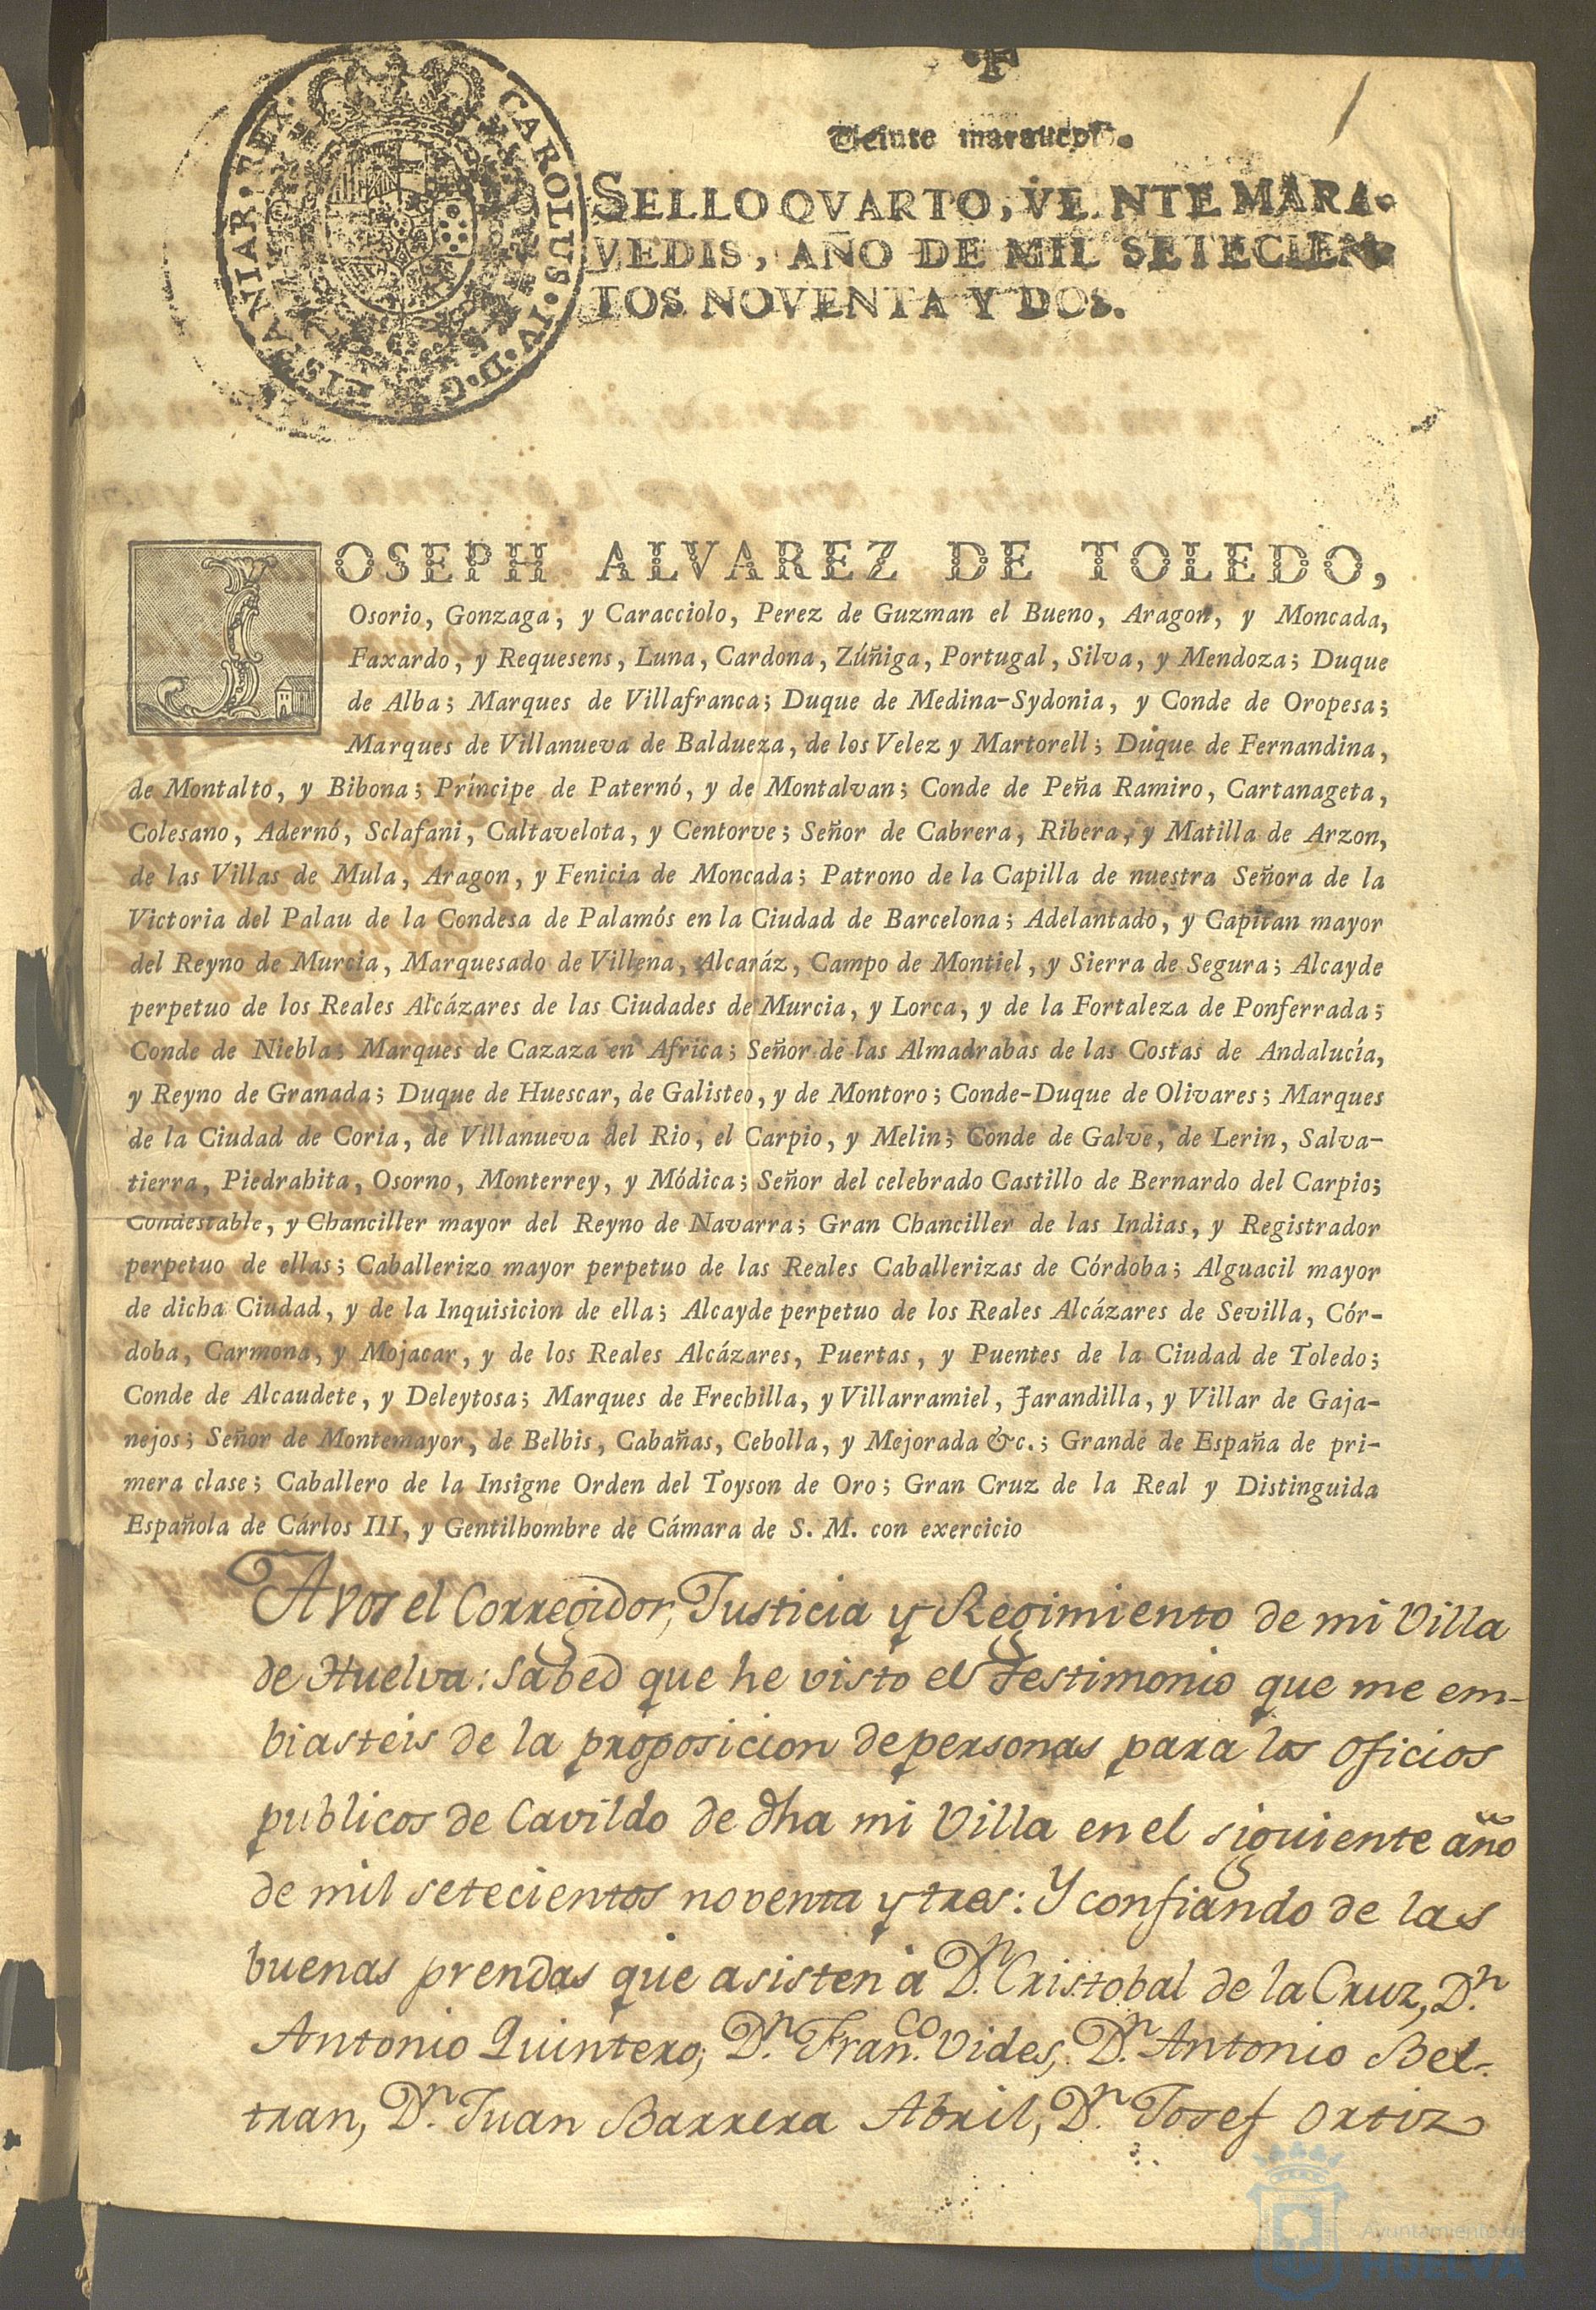 Veinte maravedis.
SELLO QVARTO, VEINTE MARA-
VEDIS, AÑO DE MIL SETECIEN-
TOS NOVENTA Y DOS.
CAROLUS·IV·D·G·HISPANIAR·REX·
JOSEPH ALVAREZ DE TOLEDO,
Osorio, Gonzaga, y Caracciolo, Perez de Guzman el Bueno, Aragon, y Moncada,
Faxardo, y Requesens, Luna, Cardona, Zúñiga, Portugal, Silva, y Mendoza; Duque
de Alba; Marques de Villafranca; Duque de Medina-Sydonia, y Conde de Oropesa;
Marques de Villanueva de Baldueza, de los Velez y Martorell; Duque de Fernandina,
de Montalto, y Bibona; Príncipe de Paternó, y de Montalvan; Conde de Peña Ramiro, Cartanageta,
Colesano, Adernó, Sclafani, Caltavelota, y Centorve; Señor de Cabrera, Ribera, y Matilla de Arzon,
de las Villas de Mula, Aragon, y Fenicia de Moncada; Patrono de la Capilla de nuestra Señora de la
Victoria del Palau de la Condesa de Palamós en la Ciudad de Barcelona; Adelantado, y Capitan mayor
del Reyno de Murcia, Marquesado de Villena, Alcaráz, Campo de Montiel, y Sierra de Segura; Alcayde
perpetuo de los Reales Alcázares de las Ciudades de Murcia, y Lorca, y de la Fortaleza de Ponferrada;
Conde de Niebla; Marques de Cazaza en Africa; Señor de las Almadrabas de las Costas de Andalucía,
y Reyno de Granada; Duque de Huescar, de Galisteo, y de Montoro; Conde-Duque de Olivares; Marques
de la Ciudad de Coria, de Villanueva del Rio, el Carpio, y Melin; Conde de Galve, de Lerin, Salva-
tierra, Piedrahita, Osorno, Monterrey, y Módica; Señor del celebrado Castillo de Bernardo del Carpio;
Condestable, y Chanciller mayor del Reyno de Navarra; Gran Chanciller de las Indias, y Registrador
perpetuo de ellas; Caballerizo mayor perpetuo de las Reales Caballerizas de Córdoba; Alguacil mayor
de dicha Ciudad, y de la Inquisicion de ella; Alcayde perpetuo de los Reales Alcázares de Sevilla, Cór-
doba, Carmona, y Mojacar, y de los Reales Alcázares, Puertas, y Puentes de la Ciudad de Toledo;
Conde de Alcaudete, y Deleytosa; Marques de Frechilla, y Villarramiel, Jarandilla, y Villar de Gaja-
nejos; Señor de Montemayor, de Belbis, Cabañas, Cebolla, y Mejorada &c.; Grande de España de pri-
mera clase; Caballero de la Insigne Orden del Toyson de Oro; Gran Cruz de la Real y Distinguida
Española de Cárlos III, y Gentilhombre de Cámara de S. M. con exercicio
A vos el Corregidor, Justicia y Regimiento de mi Villa
de Huelva: Sabed que he visto el Testimonio que me em-
biasteis de la proposicion de personas para los oficios
publicos de Cavildo de dha mi Villa en el siguiente año
de mil setecientos noventa y tres: Y confiando de las
buenas prendas que asisten à Dn. Cristobal de la Cruz, Dn.
Antonio Quintero, Dn. Franco. Vides, Dn. Antonio Bel-
tran, Dn. Juan Barrera Abril, Dn. Josef Ortiz
Ayuntamiento de
HUELVA